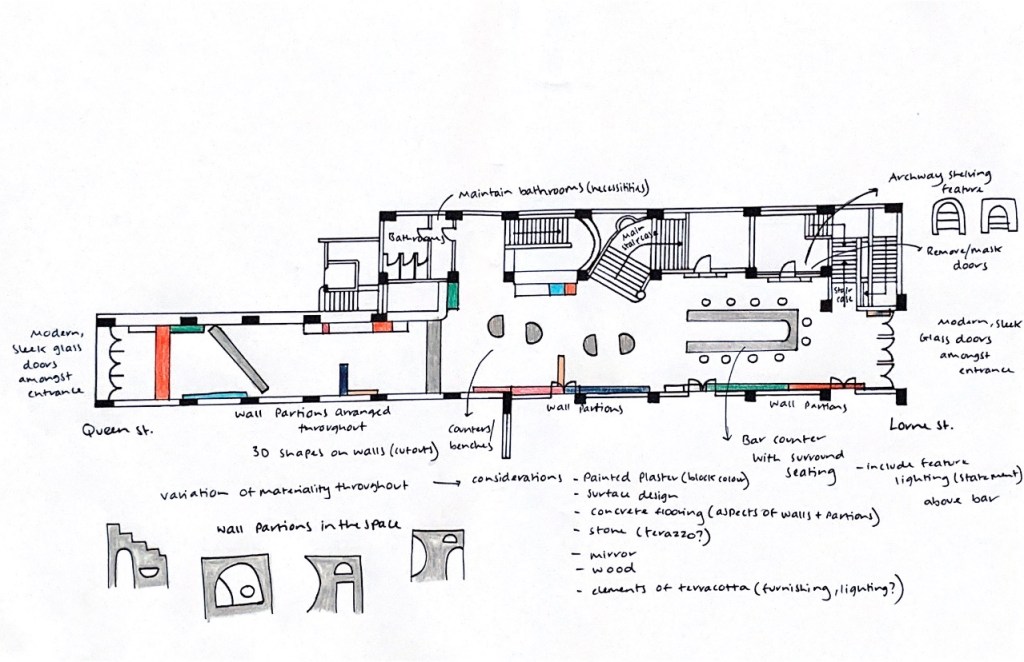 Maintain bathrooms (necessities)
Archway shelving
feature
Bathrooms
Main
staircase
Remove/mask
doors
stair
case
Modern,
sleek glass
doors
amongst
entrance
Modern, sleek
Glass doors
amongst
entrance
Queen st.
Wall Partions arranged
throughout
Wall Partions
Wall Partions
Lorne st.
3D shapes on walls (cutouts)
Counters/
benches
Bar counter
with surround
seating
- include feature
lighting (statement)
above bar
variation of materiality throughout
considerations
- Painted Plaster (block colour)
- surface design
- concrete flooring (aspects of walls + partions)
- stone (terazzo?)
- mirror
- wood
- elements of terracotta (furnishing, lighting?)
Wall Partions in the space